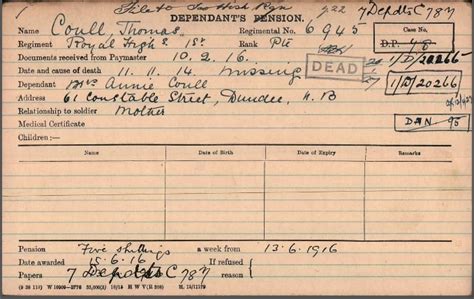 File to Scottish Rgn
DEPENDANT'S PENSION. 7 Depdts C 787
Name Coull, Thomas Regimental No. 6945 Case No.
Regiment Royal Highrs 1st Rank Pte D.P. 48
Documents received from Paymaster 10.2.16 1/D/20266
Date and cause of death 11.11.14 missing DEAD
Dependant Mrs Annie Coull 1/D/20266
Address 61 Constable Street, Dundee, N.B
Relationship to soldier Mother
Medical Certificate DAN 95
Children:—
Name. Date of Birth. Date of Expiry. Remarks.
Pension Five shillings a week from 13.6.1916
Date awarded 15.6.16 If refused
Papers 7 Depdts C 787 reason